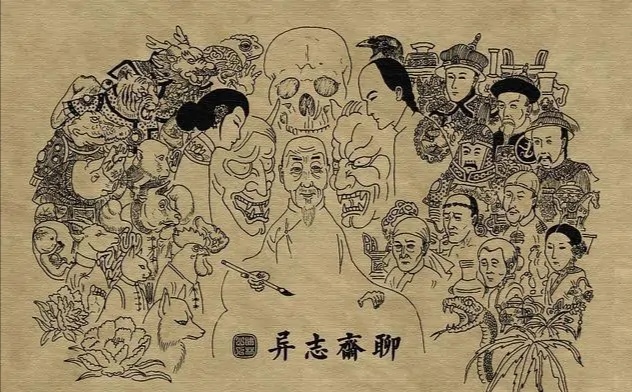 聊齋志异